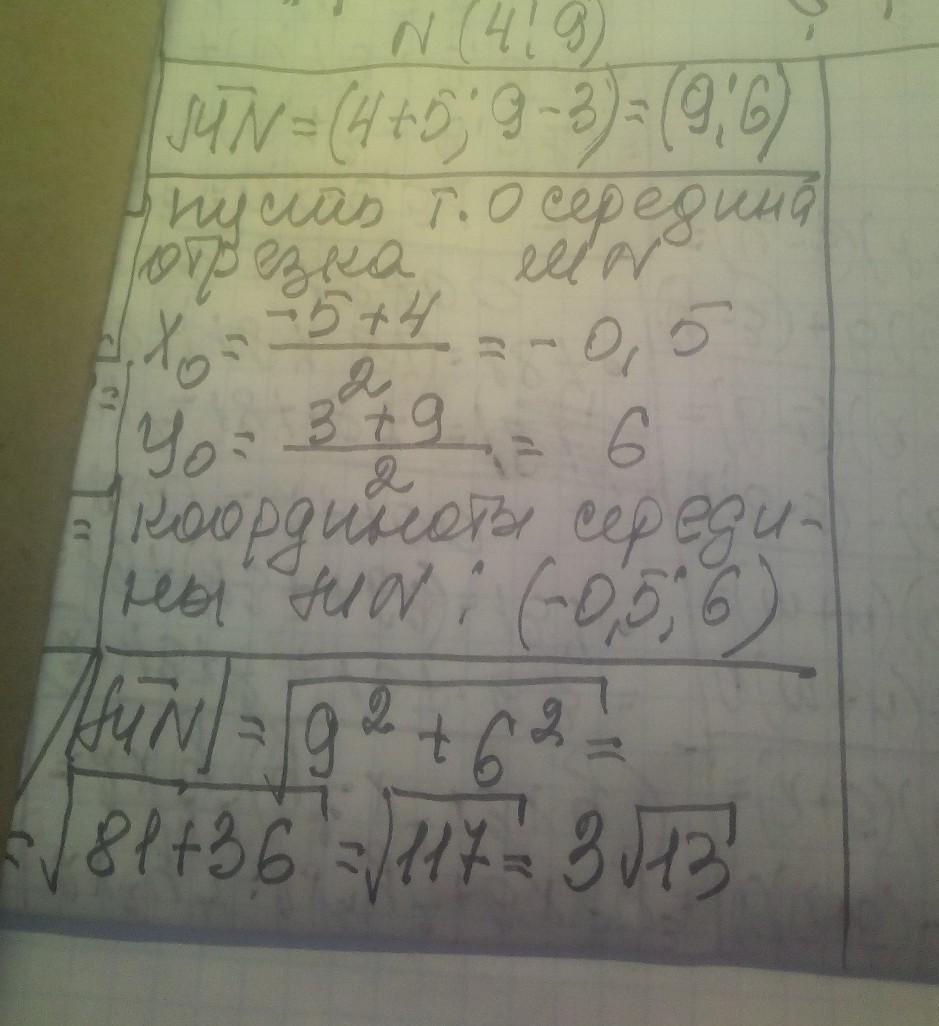 N (4; 9)
M̅N̅ = (4+5; 9-3) = (9; 6)
пусть т. О середина
отрезка MN
X₀ = (-5+4)/2 = -0,5
У₀ = (3+9)/2 = 6
координаты середи-
ны MN: (-0,5; 6)
|M̅N̅| = √(9² + 6²) =
= √(81+36) = √117 = 3√13